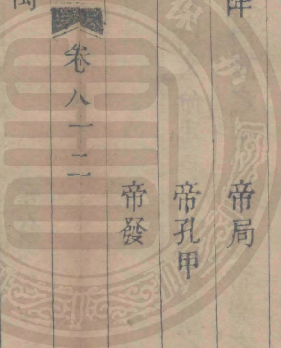 帝局
帝孔甲
帝發
卷八一二